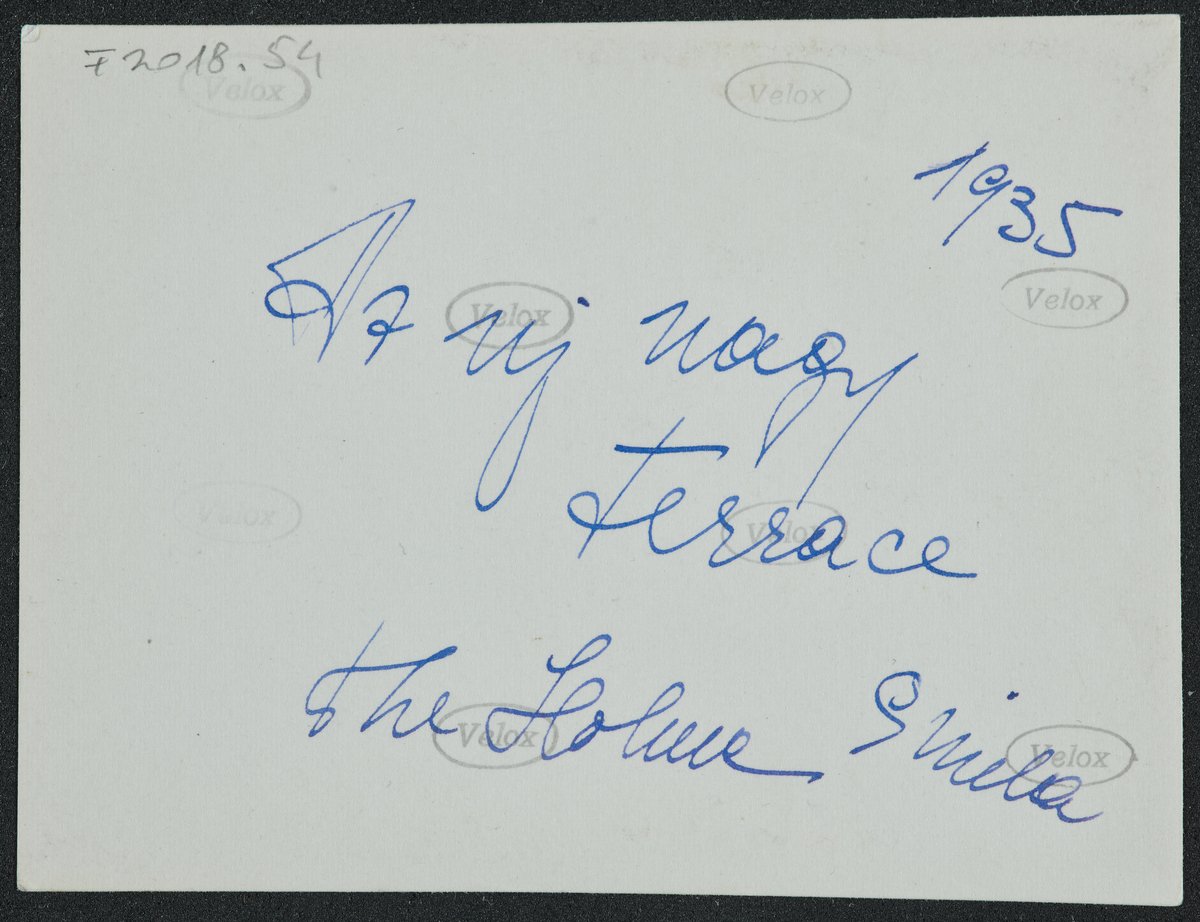 F2018.54
Velox
Velox
1935
Velox
Az uj nagy
Velox
terrace
Velox
Velox
The Holme Simla
Velox
Velox